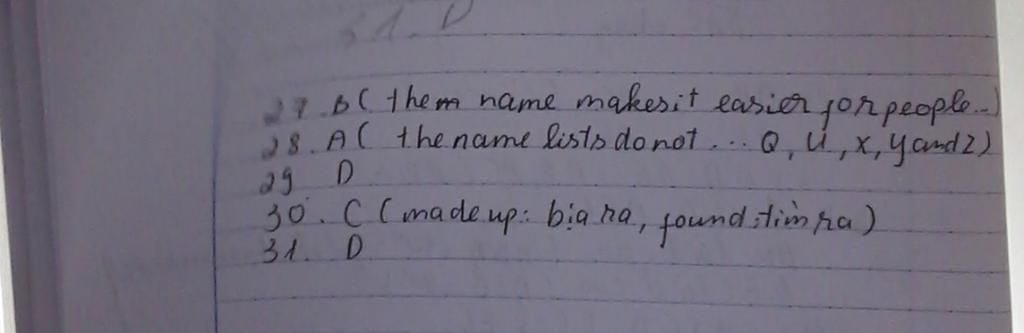 31. D
27. B ( them name makes it easier for people...)
28. A ( the name lists do not ... Q, U, X, Y and Z)
29 D
30. C ( made up: bịa ra, found: tìm ra)
31. D